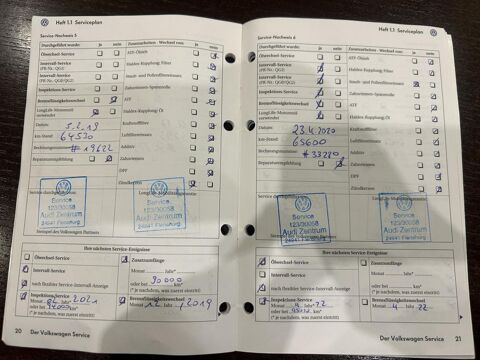 Heft 1.1 Serviceplan
Service-Nachweis 5
Durchgeführt wurde: ja nein
Zusatzarbeiten - Wechsel von: ja nein
Ölwechsel-Service
ATF-Ölsieb
Intervall-Service
(PR-Nr.: QG1)
Haldex Kupplung: Filter
Intervall-Service
Staub- und Pollenfiltereinsatz
Inspektions-Service
Zahnriemen-Spannrolle
Bremsflüssigkeitswechsel
ATF
LongLife-Motorenöl
verwendet
Haldex Kupplung: Öl
Datum: 5.2.19
Kraftstofffilter
km-Stand: 64520
Luftfiltereinsatz
Rechnungsnummer: #19622
Additiv
Zahnriemen
Reparaturempfehlung
DPF
Zündkerzen
Service durchgeführt
Service
123/00058
Audi Zentrum
24941 Flensburg
Service
123/00058
Audi Zentrum
24941 Flensburg
Stempel des Volkswagen Partners
Ihre nächsten Service-Ereignisse
Ölwechsel-Service
Zusatzumfänge
Intervall-Service
Monat Jahr*
oder bei 90.000 km*
nach flexibler Service-Intervall-Anzeige
(* je nachdem, was zuerst eintritt)
Inspektions-Service
Bremsflüssigkeitswechsel
Monat Jahr 2021
Monat 12 Jahr 2019
oder bei km*
(* je nachdem, was zuerst eintritt)
20 Der Volkswagen Service
Heft 1.1 Serviceplan
Service-Nachweis 6
Durchgeführt wurde: ja nein
Zusatzarbeiten - Wechsel von: ja nein
Ölwechsel-Service
ATF-Ölsieb
Intervall-Service
(PR-Nr.: QG1)
Haldex Kupplung: Filter
Intervall-Service
Staub- und Pollenfiltereinsatz
Inspektions-Service
Zahnriemen-Spannrolle
Bremsflüssigkeitswechsel
ATF
LongLife-Motorenöl
verwendet
Haldex Kupplung: Öl
Datum: 23.4.2020
Kraftstofffilter
km-Stand: 65600
Luftfiltereinsatz
Rechnungsnummer: #33280
Additiv
Zahnriemen
Reparaturempfehlung
DPF
Zündkerzen
Service durchgeführt
Service
123/00058
Audi Zentrum
24941 Flensburg
Service
123/00058
Audi Zentrum
24941 Flensburg
Stempel des Volkswagen Partners
Ihre nächsten Service-Ereignisse
Ölwechsel-Service
Zusatzumfänge
Intervall-Service
Monat Jahr*
oder bei km*
nach flexibler Service-Intervall-Anzeige
(* je nachdem, was zuerst eintritt)
Inspektions-Service
Bremsflüssigkeitswechsel
Monat 4 Jahr 22
Monat 4 Jahr 22
oder bei km*
(* je nachdem, was zuerst eintritt)
Der Volkswagen Service 21